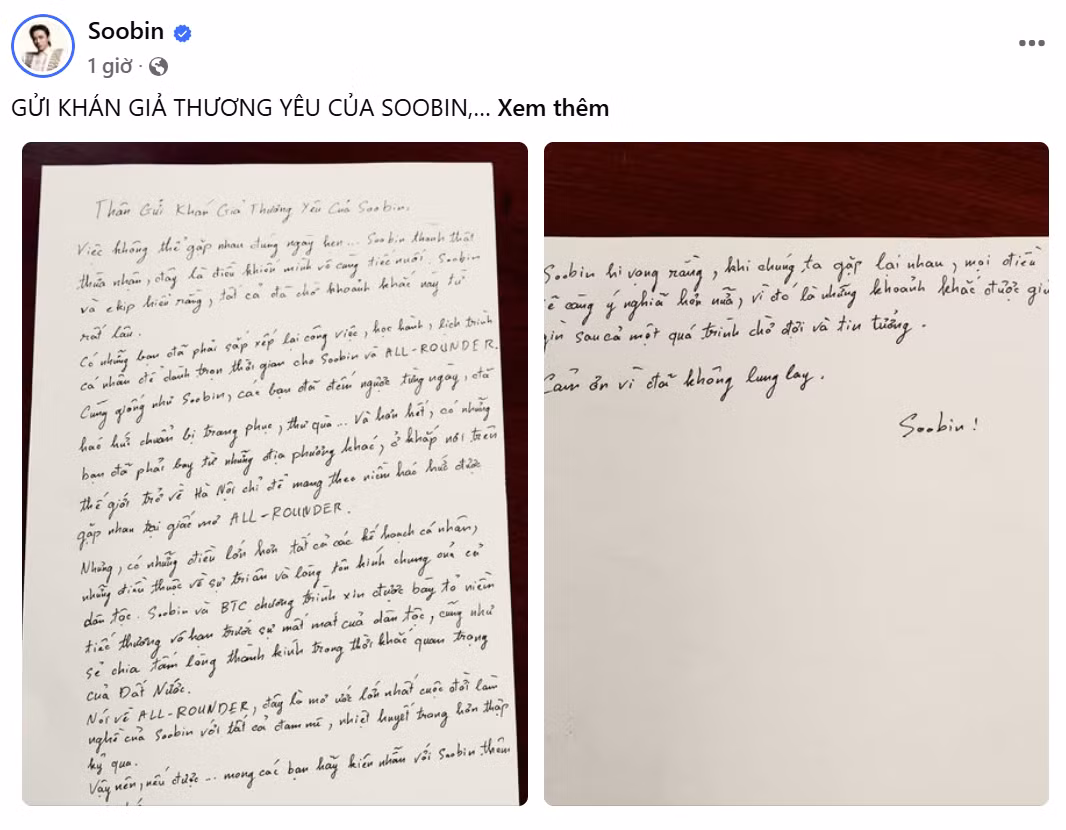 Soobin
1 giờ ·
GỬI KHÁN GIẢ THƯƠNG YÊU CỦA SOOBIN,... Xem thêm
Thân Gửi Khán Giả Thương Yêu Của Soobin,
Việc không thể gặp nhau đúng ngày hẹn... Soobin thành thật
thừa nhận, đây là điều khiến mình vô cùng tiếc nuối. Soobin
và ekip hiểu rằng, tất cả đã chờ khoảnh khắc này từ
rất lâu.
Có những bạn đã phải sắp xếp lại công việc, học hành, lịch trình
cá nhân để dành trọn thời gian cho Soobin và ALL-ROUNDER.
Cũng giống như Soobin, các bạn đã đếm ngược từng ngày, đã
háo hức chuẩn bị trang phục, thư quà... Và hơn hết, có những
bạn đã phải bay từ những địa phương khác, ở khắp nơi trên
thế giới trở về Hà Nội chỉ để mang theo niềm háo hức được
gặp nhau tại giấc mơ ALL-ROUNDER.
Nhưng, có những điều lớn hơn tất cả các kế hoạch cá nhân,
những điều thuộc về sự tri ân và lòng tôn kính chung của cả
dân tộc. Soobin và BTC chương trình xin được bày tỏ niềm
tiếc thương vô hạn trước sự mất mát của dân tộc, cũng như
sẻ chia tấm lòng thành kính trong thời khắc quan trọng
của Đất Nước.
Nói về ALL-ROUNDER, đây là mơ ước lớn nhất cuộc đời làm
nghề của Soobin với tất cả đam mê, nhiệt huyết trong hơn thập
kỷ qua.
Vậy nên, nếu được... mong các bạn hãy kiên nhẫn với Soobin thêm
Soobin hi vọng rằng, khi chúng ta gặp lại nhau, mọi điều
sẽ càng ý nghĩa hơn nữa, vì đó là những khoảnh khắc được giữ
gìn sau cả một quá trình chờ đợi và tin tưởng.
Cảm ơn vì đã không lung lay.
Soobin!